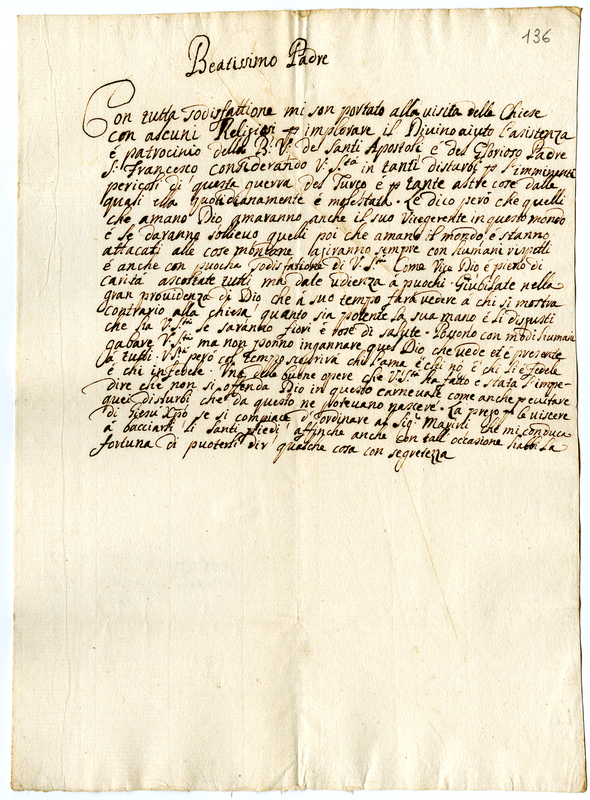 136
Beatissimo Padre
Con tutta sodisfattione mi son portato alla visita delle Chiese
con alcuni Religiosi p implorare il Divino aiuto l'asistenza
é patrocinio della B. V. de Santi Apostoli é del Glorioso Padre
S. Francesco considerando V. Stà in tanti disturbi p l'imminenti
pericoli di questa guerra del Turco é p tante altre cose dalle
quali ella quotidianamente é molestata. Le dico però che quelli
che amano Dio amaranno anche il suo Vicegerente in questo mondo
é se daranno sollievo quelli poi che amano il mondo, é stanno
attacati alle cose mondane agiranno sempre con humani rispetti
é anche con puocha sodisfatione di V. Stà Come Vice Dio é pieno di
carità ascoltate tutti ma date udienza a puochi. Giubilate nella
gran providenza di Dio che à suo tempo farà vedere à chi si mostra
contrario alla chiesa quanto sia potente la sua mano é li disgusti
che hà V. Stà se saranno fiori é rose di salute. Possono con modi humani
gabare V. Stà ma non ponno ingannare quel Dio che vede et é presente
à tutti. V. Stà però col tempo scoprirà chi l'ama é chi nò é chi li é fedele
é chi infedele. Una delle buone opere che V. Stà ha fatto é stata l'impe-
dire che non si ofenda Dio in questo carnevale come anche p evitare
quei disturbi che da questo ne potevano nascere. La prego p le viscere
di Giesu Xpõ se si compiace d'ordinare al Sig. che mi conduca
à bacciarli li Santi piedi affinche anche con tall'occasione habbi la
fortuna di puoterli dir qualche cosa con segretezza